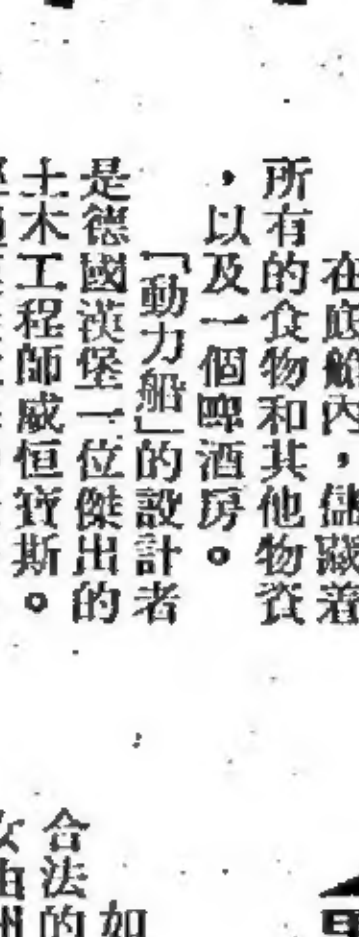 在底艙內，儲藏着
所有的食物和其他物資
，以及一個啤酒房。
「動力船」的設計者
是德國漢堡一位傑出的
土木工程師威恒寶斯。
如
合法的